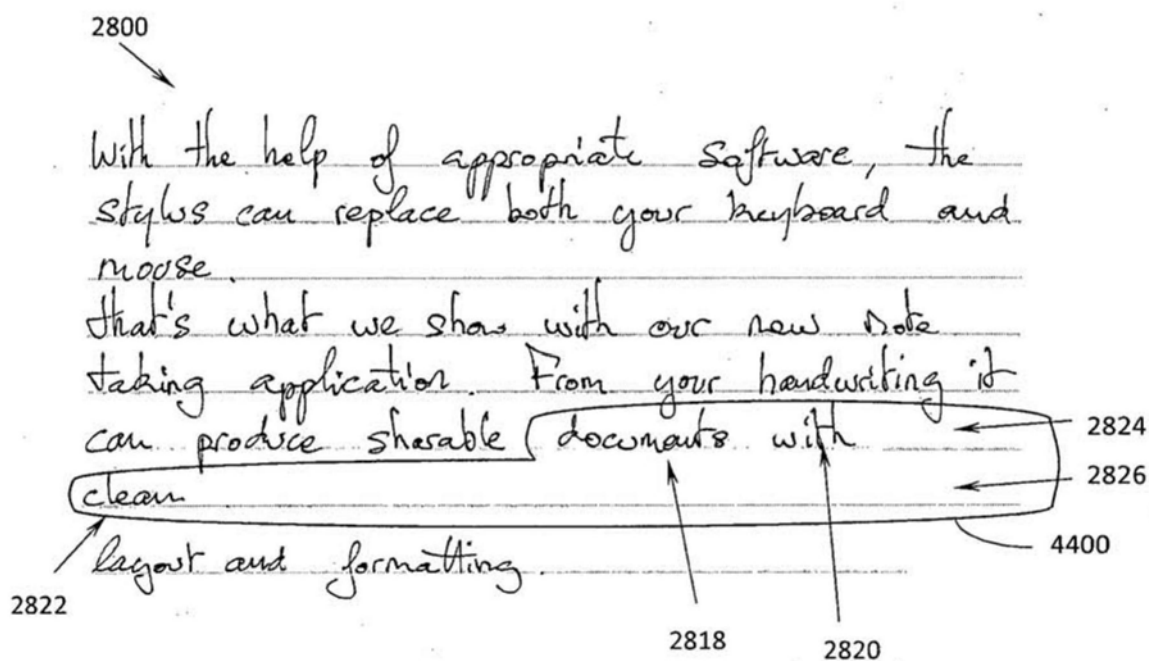 2800
With the help of appropriate software, the
stylus can replace both your keyboard and
mouse.
that's what we show with our new note
taking application. From your handwriting it
can produce sharable documents with
2824
clean
2826
4400
layout and formatting.
2822
2818
2820